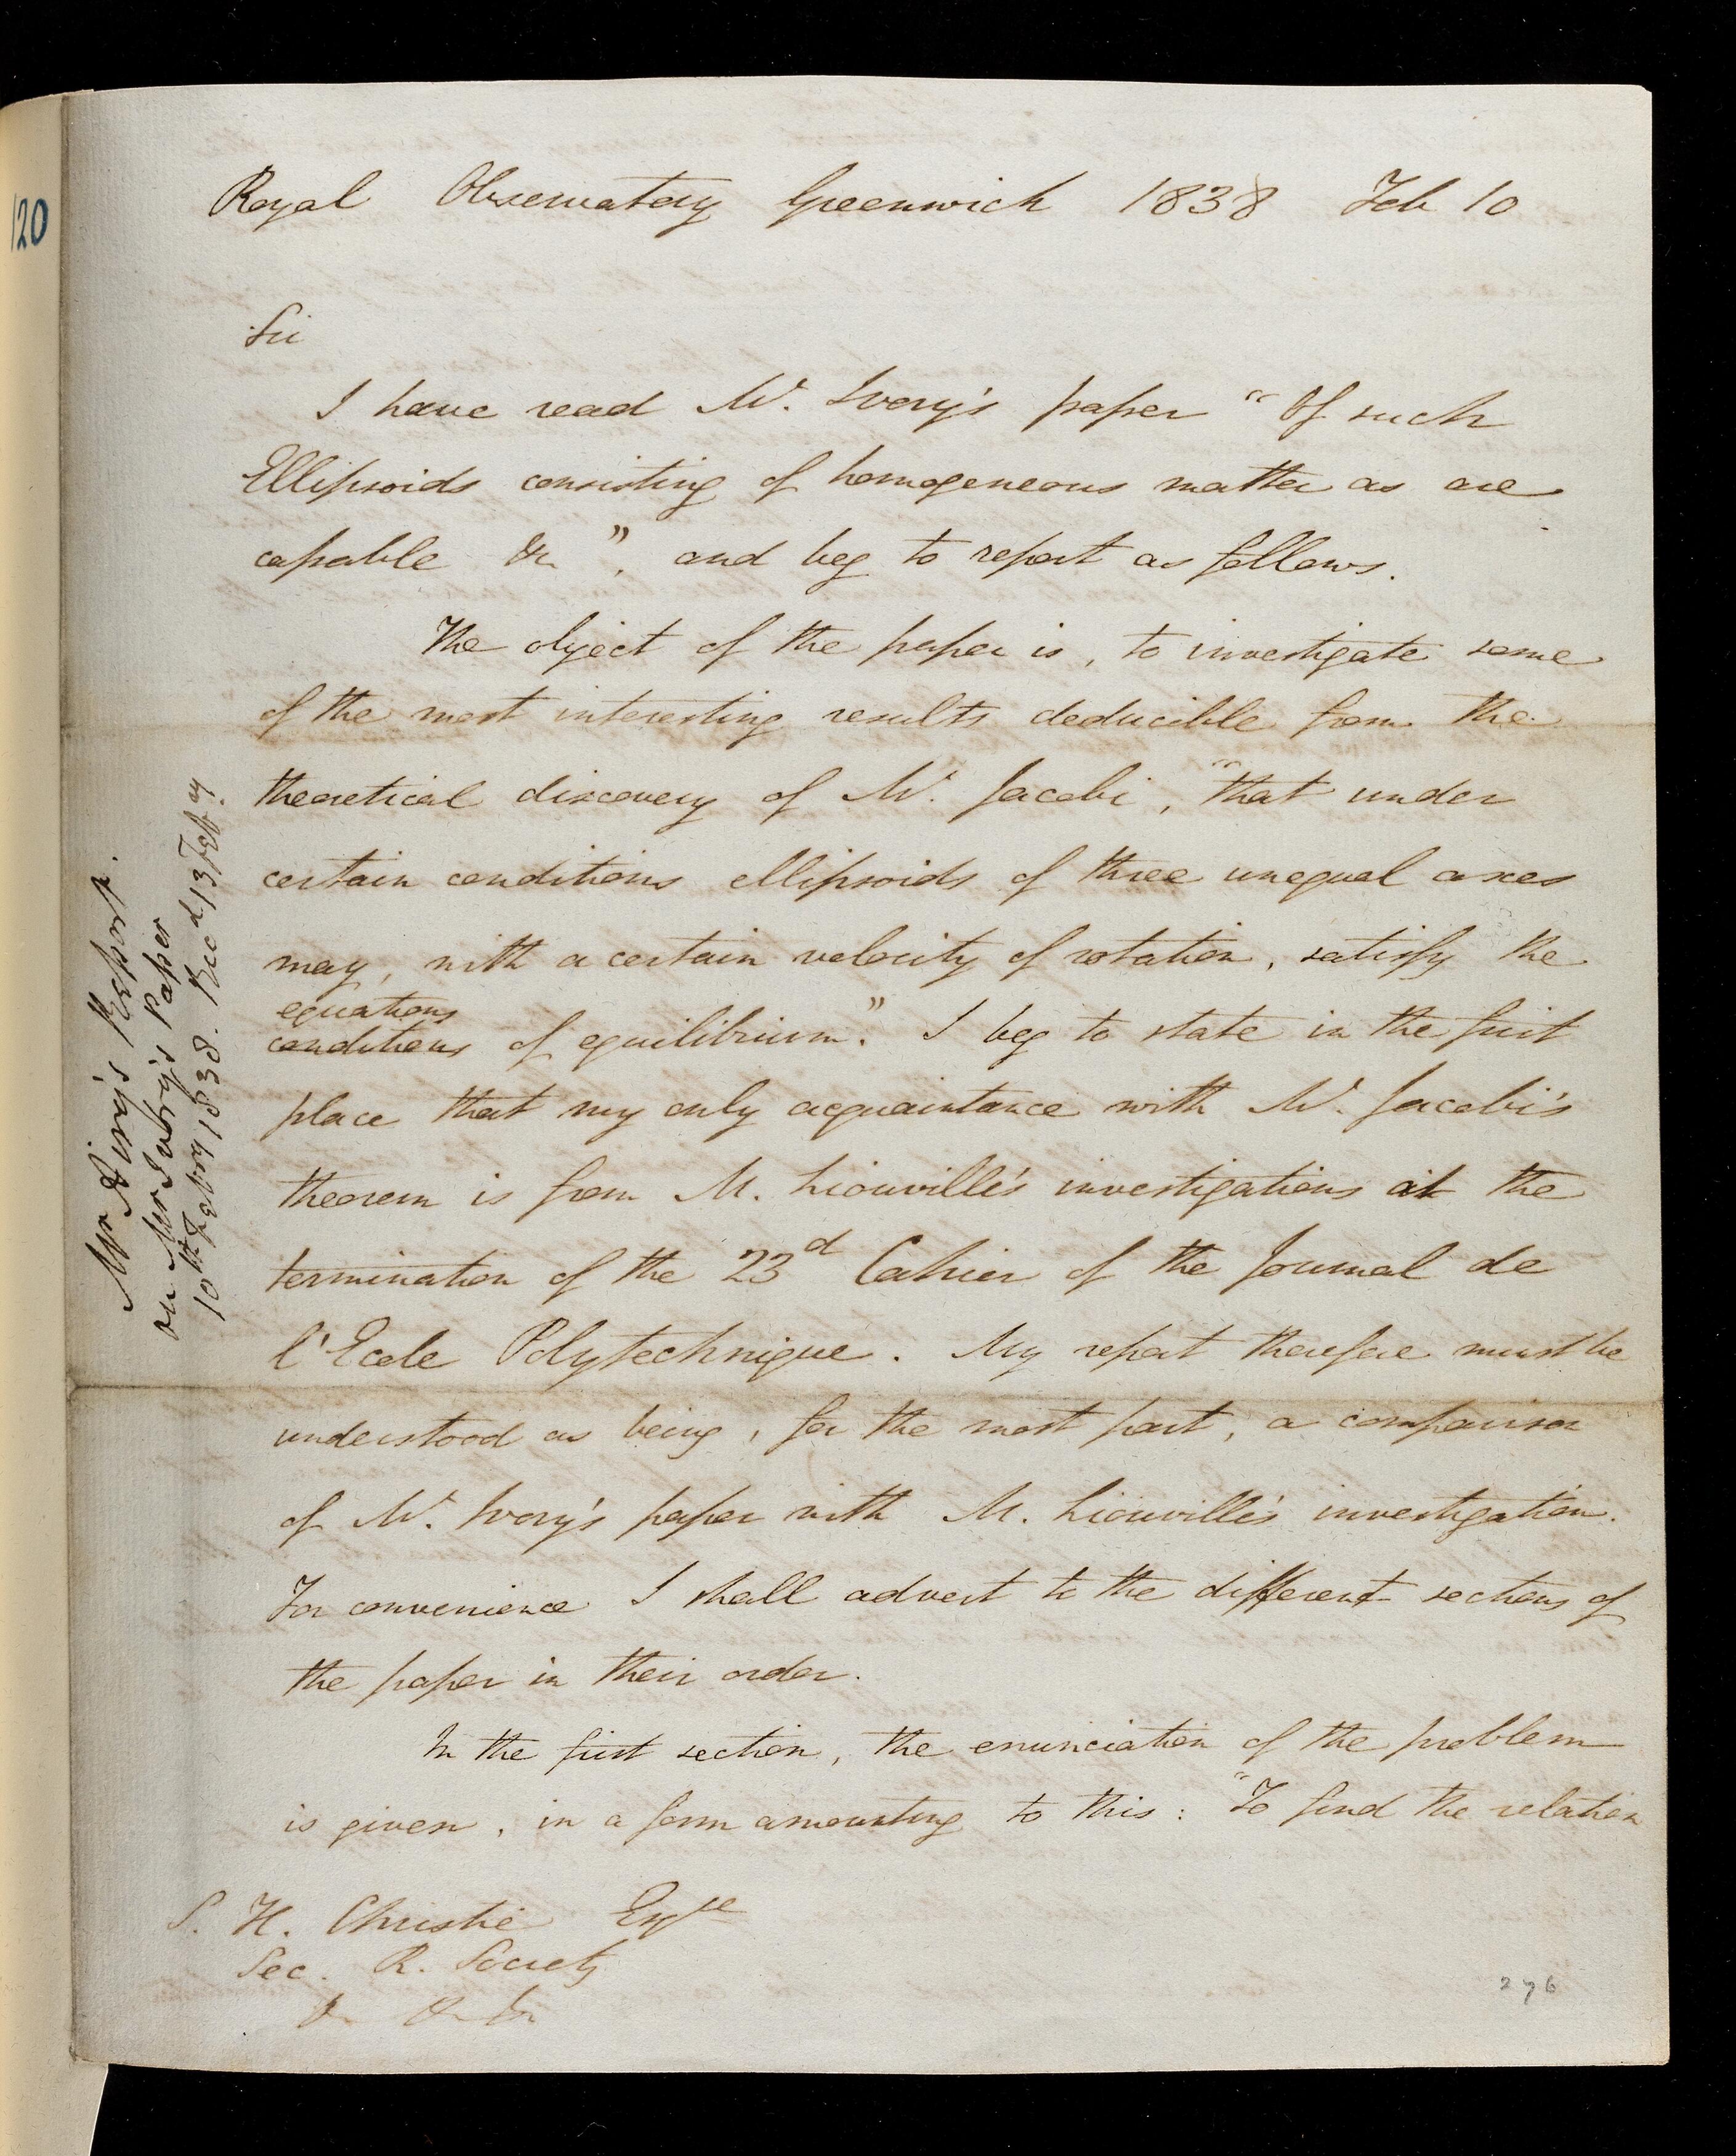 120
Royal Observatory Greenwich 1838 Feb 10
Sir
I have read Mr. Ivory's paper "Of such
Ellipsoids consisting of homogeneous matter as are
capable &c", and beg to report as follows.
The object of the paper is, to investigate some
of the most interesting results deducible from the
theoretical discovery of Mr. Jacobi, "that under
certain conditions ellipsoids of three unequal axes
may, with a certain velocity of rotation, satisfy the
equations
conditions of equilibrium." I beg to state in the first
place that my only acquaintance with Mr. Jacobi's
theorem is from M. Liouville's investigations at the
termination of the 23d Cahier of the Journal de
l'Ecole Polytechnique. My report therefore must be
understood as being, for the most part, a comparison
of Mr. Ivory's paper with M. Liouville's investigation.
For convenience I shall advert to the different sections of
the paper in their order.
In the first section, the enunciation of the problem
is given, in a form amounting to this: "To find the relation
S. H. Christie Esqre
Sec. R. Society
&c &c &c
276
Mr Airy's Report.
on Mr Ivory's Paper
10th Febry 1838. Recd 13 Feby